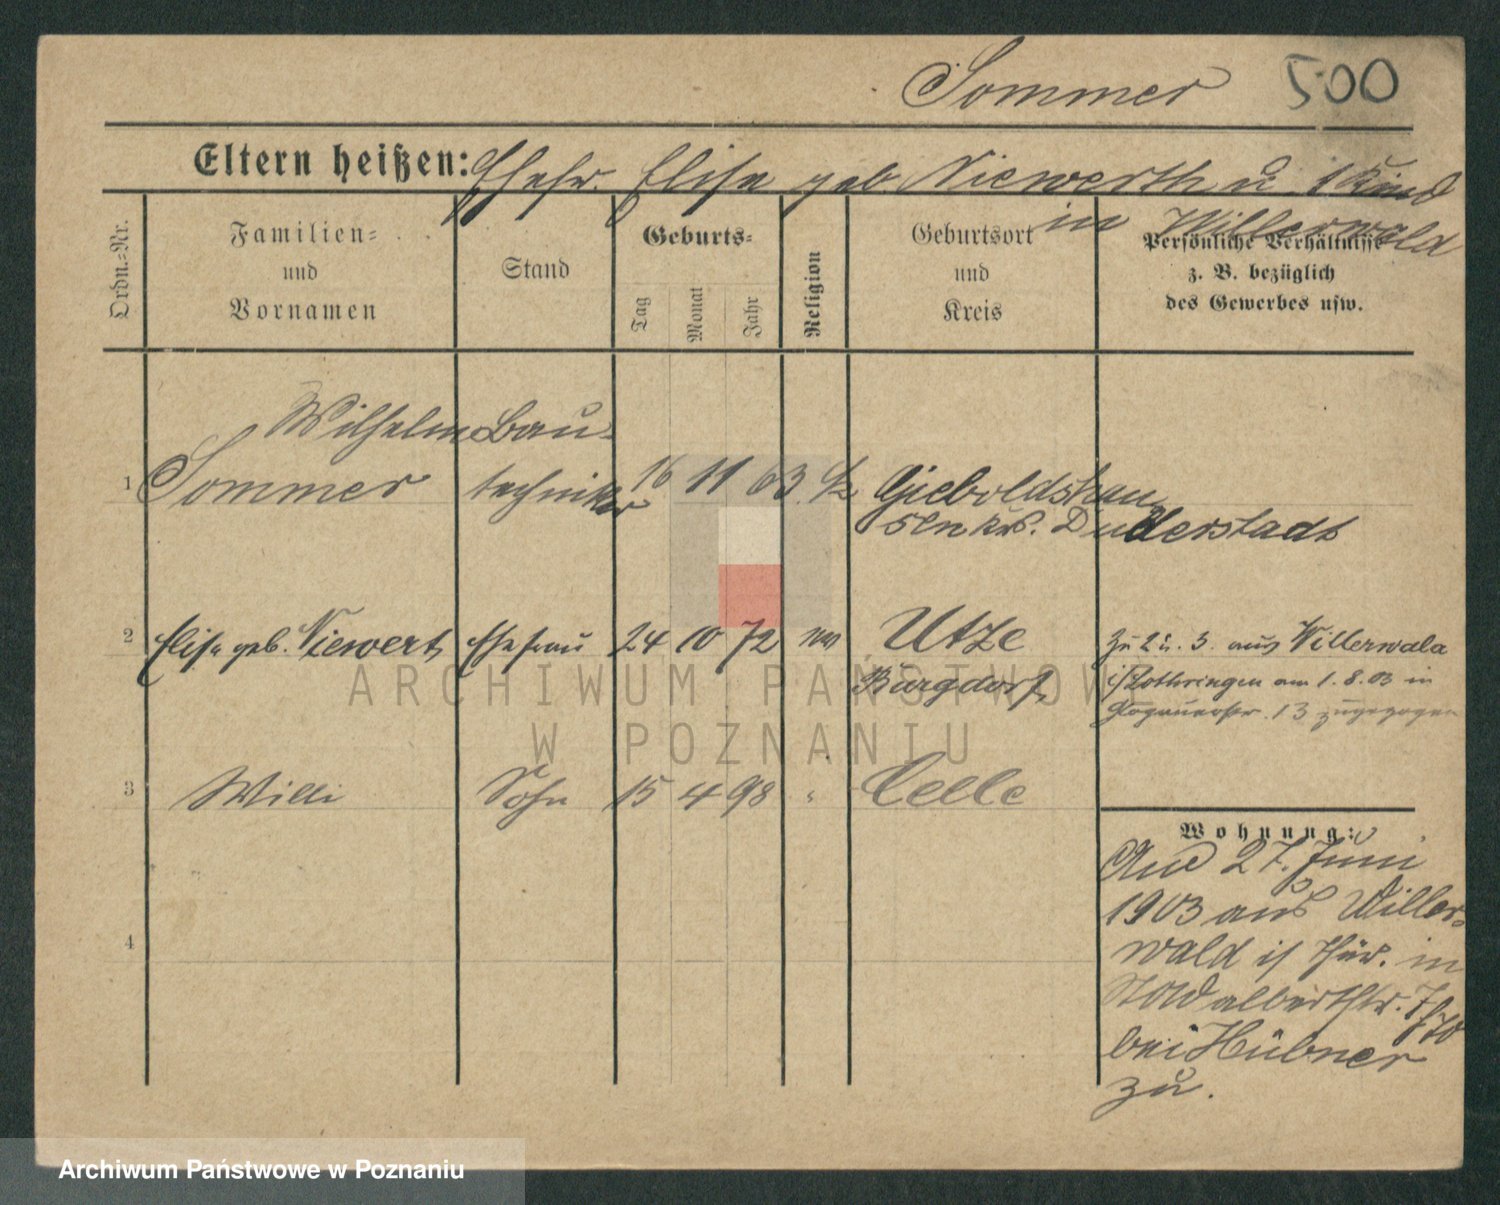 Sommer 500
Eltern heißen: Ehefr. Elise geb. Niewerth u. 1 Kind
in Willerwald
Ordn.-Nr.
Familien-
und
Vornamen
Stand
Geburts-
Tag
Monat
Jahr
Religion
Geburtsort
und
Kreis
Persönliche Verhältnisse
z. B. bezüglich
des Gewerbes usw.
Wilhelm Bau-
1 Sommer techniker 16 11 63 Gieboldshau-
sen Krs. Duderstadt
2 Elise geb. Niewert Ehefrau 24 10 72 Utze
Burgdorf
zu 2 u. 3. aus Willerwald
i/Lothringen am 1.8.03 in
Glogauerstr. 13 zugezogen
3 Willi Sohn 15 4 98 " Celle
4
Wohnung:
Am 27. Juni
1903 aus Willer-
wald i/ in
bei Hübner
zu.
ARCHIWUM PAŃSTWOW
W POZNANIU
Archiwum Państwowe w Poznaniu